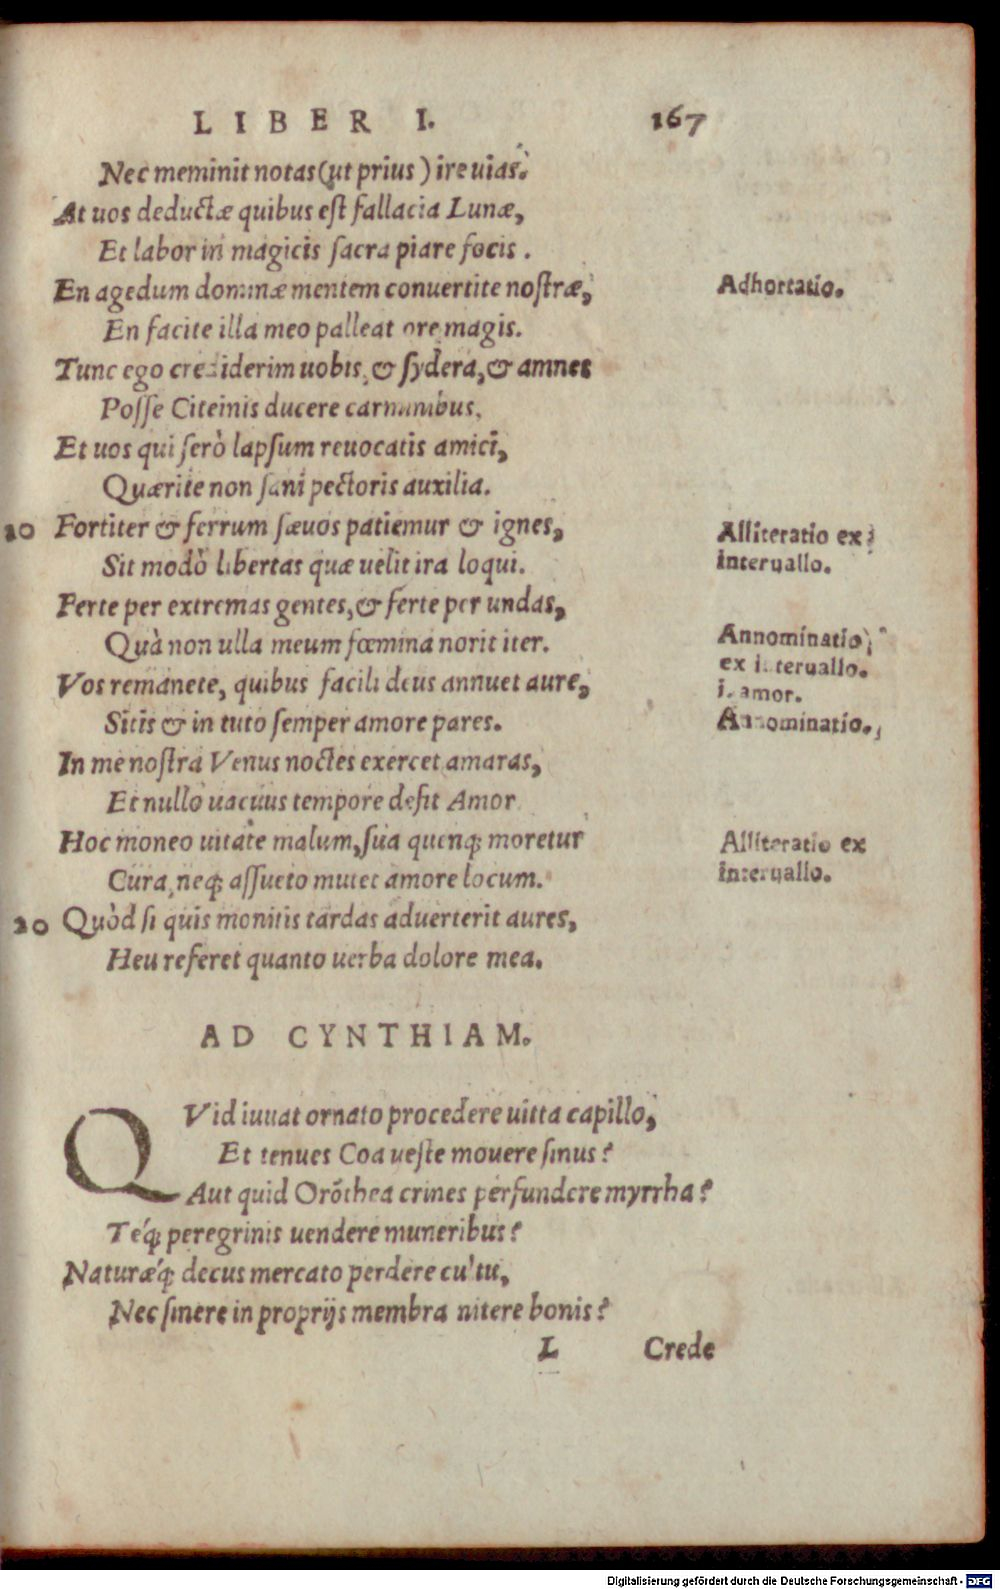 LIBER I. 167
Nec meminit notas (ut prius) ire uias.
At uos deductæ quibus est fallacia Lunæ,
Et labor in magicis sacra piare focis.
En agedum dominæ mentem conuertite nostræ, Adhortatio.
En facite illa meo palleat ore magis.
Tunc ego crediderim uobis, & sydera, & amnes
Posse Citeinis ducere carminibus.
Et uos qui serò lapsum reuocatis amici,
Quærite non sani pectoris auxilia.
10 Fortiter & ferrum sæuos patiemur & ignes, Alliteratio ex
Sit modò libertas quæ uelit ira loqui. interuallo.
Ferte per extremas gentes, & ferte per undas,
Quà non ulla meum fœmina norit iter. Annominatio
ex interuallo.
Vos remanete, quibus facili deus annuet aure, i. amor.
Sitis & in tuto semper amore pares. Annominatio.
In me nostra Venus noctes exercet amaras,
Et nullo uacuus tempore desit Amor
Hoc moneo uitate malum, sua quenq; moretur Alliteratio ex
Cura, neq; assueto mutet amore locum. interuallo.
20 Quòd si quis monitis tardas aduerterit aures,
Heu referet quanto uerba dolore mea.
AD CYNTHIAM.
QVid iuuat ornato procedere uitta capillo,
Et tenues Coa ueste mouere sinus?
Aut quid Orōthea crines perfundere myrrha?
Téq; peregrinis uendere muneribus?
Naturǽq; decus mercato perdere cultu,
Nec sinere in proprijs membra nitere bonis?
L Crede
Digitalisierung gefördert durch die Deutsche Forschungsgemeinschaft - DFG